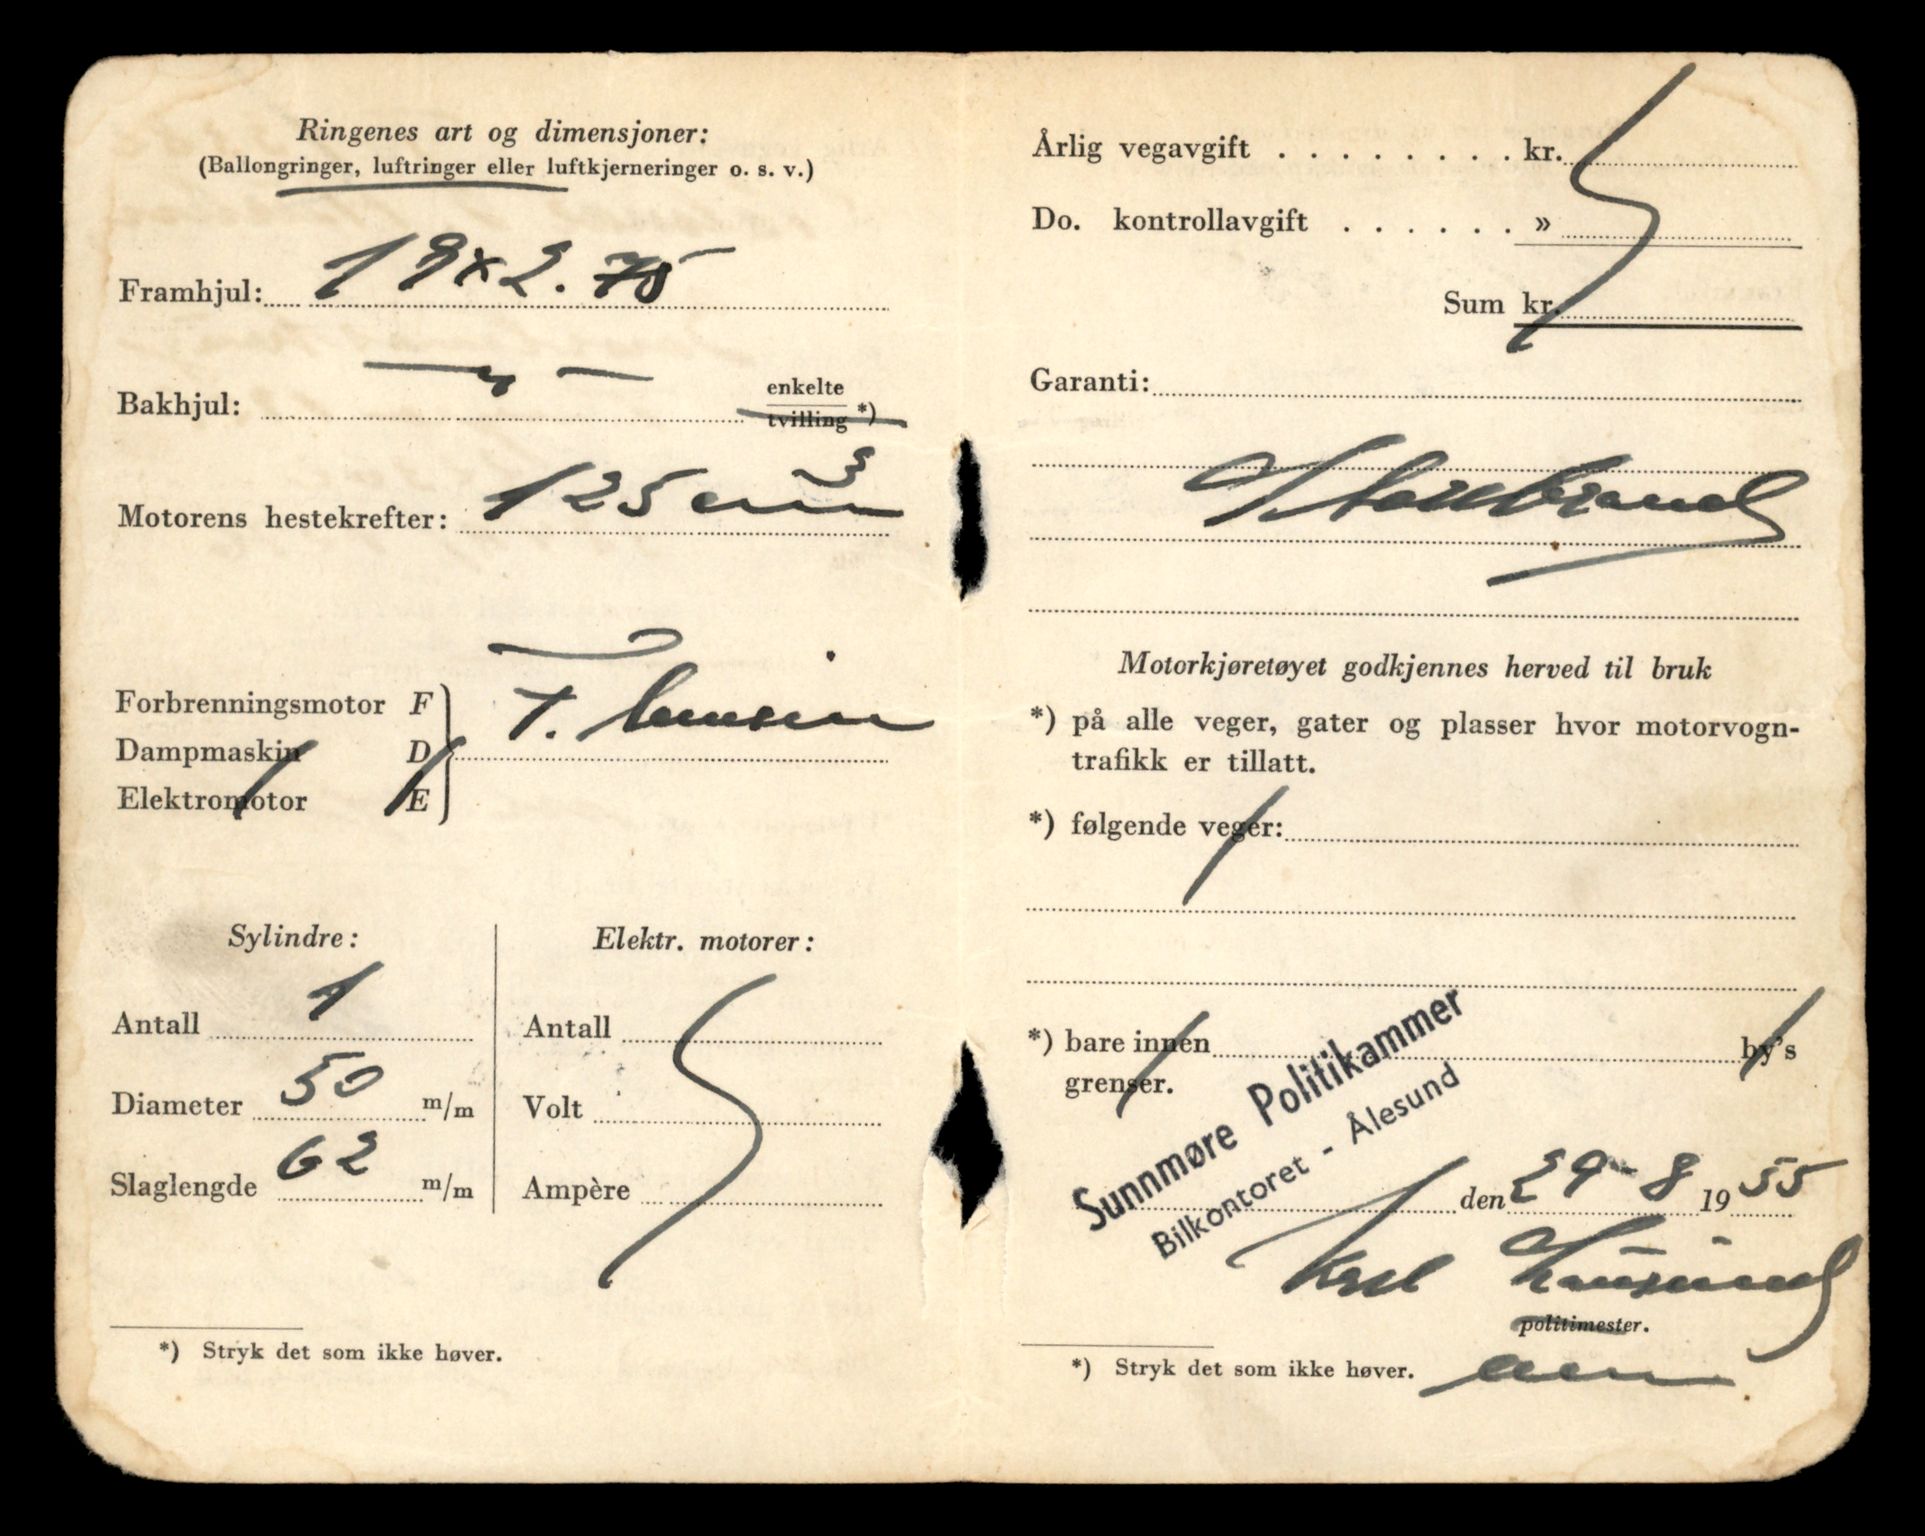 Ringenes art og dimensjoner:
(Ballongringer, luftringer eller luftkjerneringer o. s. v.)
Framhjul: 19x2.75
Bakhjul: — " — enkelte
tvilling *)
Motorens hestekrefter: 125 cm3
Forbrenningsmotor F
Dampmaskin D
Elektromotor E
F. bensin
Sylindre:
Antall 1
Diameter 50 m/m
Slaglengde 62 m/m
Elektr. motorer:
Antall
Volt
Ampère
*) Stryk det som ikke høver.
Årlig vegavgift . . . . . . . . kr.
Do. kontrollavgift . . . . . . »
Sum kr.
Garanti:
Storebrand
Motorkjøretøyet godkjennes herved til bruk
*) på alle veger, gater og plasser hvor motorvogn-
trafikk er tillatt.
*) følgende veger:
*) bare innen by's
grenser.
Sunnmøre Politikammer
Bilkontoret - Ålesund
den 29-8 1955
politimester.
*) Stryk det som ikke høver.